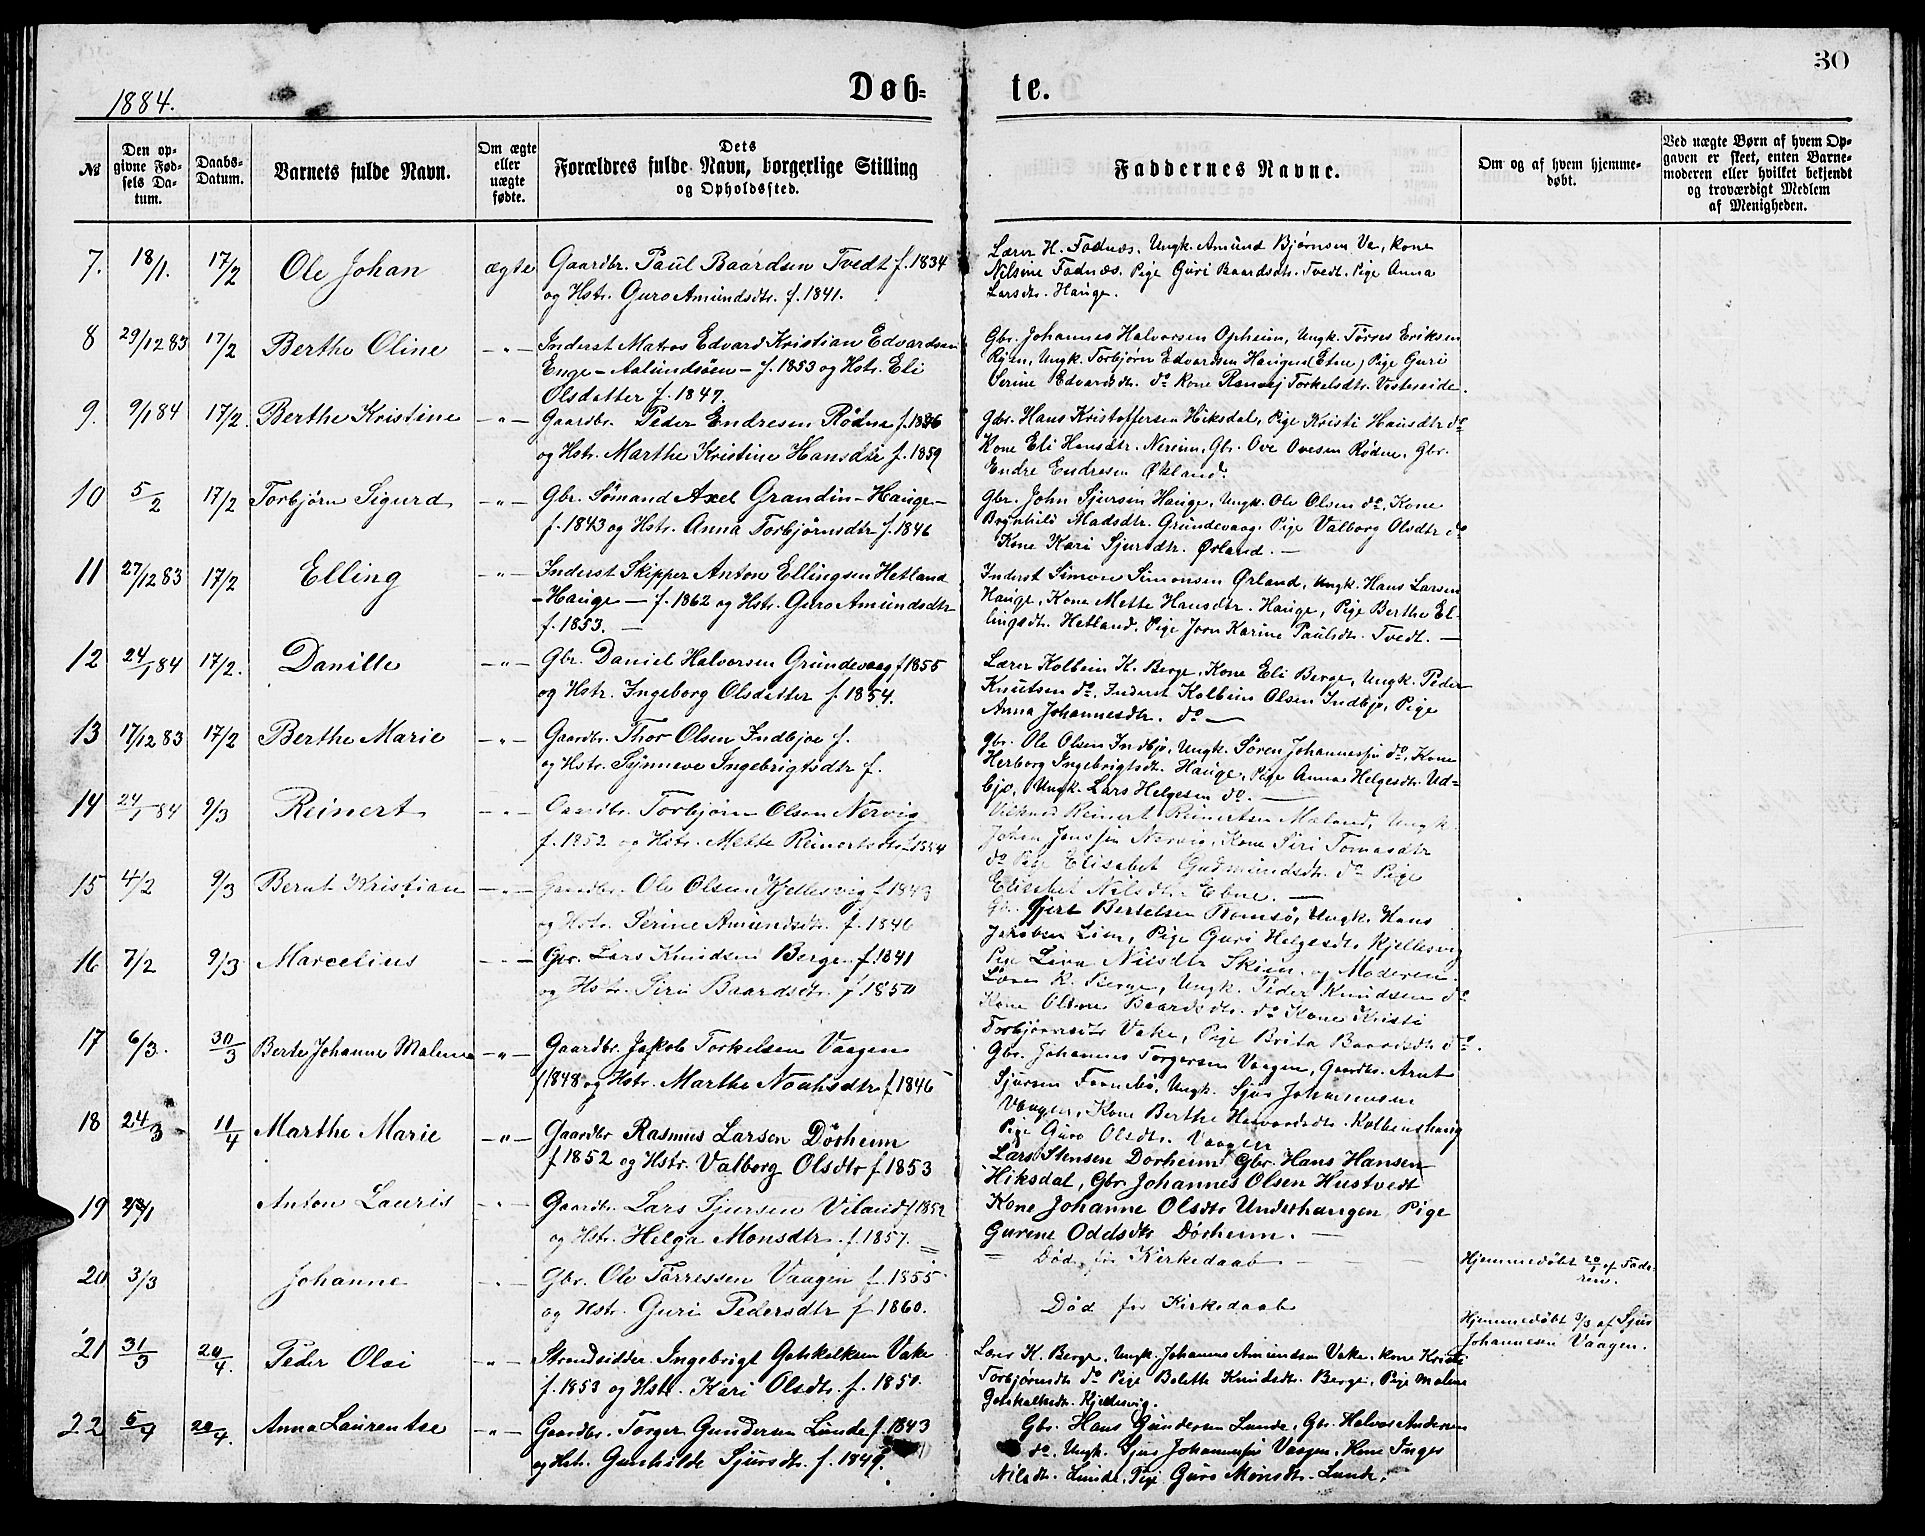 30
1884.
Døb-te.
№
Den opgivne Fødsels Datum.
Daabs-Datum.
Barnets fulde Navn.
Om ægte eller uægte fødte.
Dets Forældres fulde Navn, borgerlige Stilling og Opholdssted.
Faddernes Navne.
Om og af hvem hjemmedøbt.
Ved uægte Børn af hvem Opgaven er skeet, enten Barnemoderen eller hvilket bekjendt og troværdigt Medlem af Menigheden.
7. 18/1. 17/2 Ole Johan ægte Gaardbr. Paul Baardsen Tvedt f. 1834
og Hstr. Guro Amundsdtr. f. 1841.
Lærer H. Fadnæs. Ungk. Amund Bjørnsen Va, Kone
Nilsine Fadnæs. Pige Guri Baardsdtr. Tvedt. Pige Anna
Larsdtr. Hauge.
8 29/12 83 17/2 Berthe Oline -"- Inderst Matros Edvard Kristian Edvardsen
Enge - Aalundsöen - f. 1853 og Hstr. Eli
Olsdatter f. 1847.
Gbr. Johannes Halvorsen Opheim, Ungk. Tørres Eriksen
Ungk. Torbjørn Edvardsen Haugen (Etne) Pige Guri
Serine Edvardsdtr. do Kone Ranvej Torkelsdtr. Vistereide.
9. 9/1 84 17/2. Berthe Kristine -"- Gaardbr. Peder Endresen Rödne f.
og Hstr. Marthe Kristine Hansdtr f. 1859
Gbr. Hans Kristoffersen Hiksdal, Pige Kristi Hansdtr do
Kone Eli Hansdtr. Nereim, Gbr. Ove Ovesen Rødne, Gbr.
Endre Endresen Økland.
10 5/2 17/2 Torbjørn Sigurd -"- Gbr. Sømand Axel Grandin - Hauge -
f. 1843 og Hstr. Anna Torbjørnsdtr f. 1846
Gbr. John Sjursen Hauge, Ungk. Ole Olsen do, Kone
Brynhild Madsdtr. Grundevaag, Pige Valborg Olsdtr do
Kone Kari Sjursdtr. Ørland. -
11 27/12 83 17/2 Elling -"- Inderst Skipper Anton Ellingsen Hetland
- Hauge - f. 1862 og Hstr. Guro Amundsdtr
f. 1853. -
Inderst Simon Simonsen Ørland, Ungk. Hans Larsen
Hauge, Kone Mette Hansdtr. Hauge, Pige Berthe El-
lingsdtr. Hetland, Pige Jorn Karine Paulsdtr. Tvedt. -
12 24/1 84 17/2. Danille -"- Gbr. Daniel Halvorsen Grundevaag f 1855
og Hstr. Ingeborg Olsdatter f. 1854.
Lærer Kolbein K. Berge, Kone Eli Berge, Ungk. Peder
Knutsen do, Inderst Kolbein Olsen Indbjo, Pige
Anna Johannesdtr. do -
13 17/12 83 17/2 Berthe Marie -"- Gaardbr. Thor Olsen Indbjoe f.
og Hstr. Synneve Ingebrigtsdtr f.
Gbr. Ole Olsen Indbjo, Ungk. Sören Johannessen do, Kone
Herborg Ingebrigtsdtr. Hauge, Pige Anna Helgesdtr. Ud-
bjo, Ungk. Lars Helgesen do. -
14 24/1 84 9/3 Reinert -"- Gaardbr. Torbjörn Olsen Nervig
f. 1852 og Hstr. Mette Reinertsdtr f 1854
Reinert Reinertsen Maland, Ungk.
Johan Nervig, Kone Siri Tomasdtr
do Pige Elisabet Gudmundsdtr. do Pige
Elisabet Nilsdtr. Etne. -
15 4/2 9/3 Bernt Kristian -"- Gaardbr. Ole Olsen Kjellesvig f. 1843
og Hstr. Serine Amundsdtr. f. 1846
Gb. Gjert Bertelsen Romsö, Ungk. Hans
Jakobsen Lien, Pige Guri Helgesdtr Kjellesvig
Pige Lina Nilsdtr Skien, og Moderen.
16 7/2 9/3 Marcelius -"- Gbr. Lars Knudsen Berge f. 1841
og Hstr. Siri Baardsdtr. f. 1850
K. Berge, Ungk. Peder Knudsen do
Kone Oline Baardsdtr. do Kone Kristi
Torbjørnsdtr Vake, Pige Brita Baardsdtr do.
17 6/3. 30/3 Berte Johanne Malene -"- Gaardbr. Jakob Torkelsen Vaagen
f 1848 og Hstr. Marthe Noahsdtr f 1846
Gbr. Johannes Torgersen Vaagen, Gaardbr. Arnt
Sjursen Ungk. Sjur Johannesen
Vaagen, Kone Berthe Havardsdtr. Kolbenshaug
Pige Guro Olsdtr. Vaagen
18 24/3 11/4 Marthe Marie -"- Gaardbr Rasmus Larsen Dörheim
f 1852 og Hstr. Valborg Olsdtr f 1853
Lars Stensen Dorheim Gbr. Hans Hansen
Hiksdal, Gbr Johannes Olsen Hustvedt
Kone Johanne Olsdtr Underhaugen, Pige
Gurine Oddsdtr Dörheim. -
19 Anton Lauris -"- Gaardbr. Lars Sjursen Viland f 1852
og Hstr. Helga Monsdtr. f. 1857.
Död før Kirkedaab
Hjemmedöbt 20/1 af Fade-
ren.
20 3/3 Johanne -"- Gbr. Ole Tørressen Vaagen f. 1855
og Hstr. Guri Pedersdtr f 1860.
Död før Kirkedaab
Hjemmedöbt 3/3 af Sjur
Johannesen Vaagen.
21 31/3 20/4 Peder Olai -"- Strandsidder Ingebrigt Gotskalksen Vake
f. 1853 og Hstr. Kari Olsdtr. f. 1850.
Lærer K. Berge. Ungk. Johannes Amundsen Vake, Kone Kristi
Torbjørnsdtr do Pige Bolette Knudsdtr. Berge, Pige Malene
Gotskalksdtr. Kjellesvig.
22 5/4 20/4. Anna Laurentse -"- Gaardbr. Torger Gundersen Lunde f. 1843
og Hstr. Gunhilde Sjursdtr. f. 1849.
Gbr. Hans Gundersen Lunde, Gbr. Halvor Andersen
do, Ungk. Sjur Johannessen Vaagen, Kone Inger
Nilsdtr. Lunde, Pige Guro Monsdtr. Lunde.